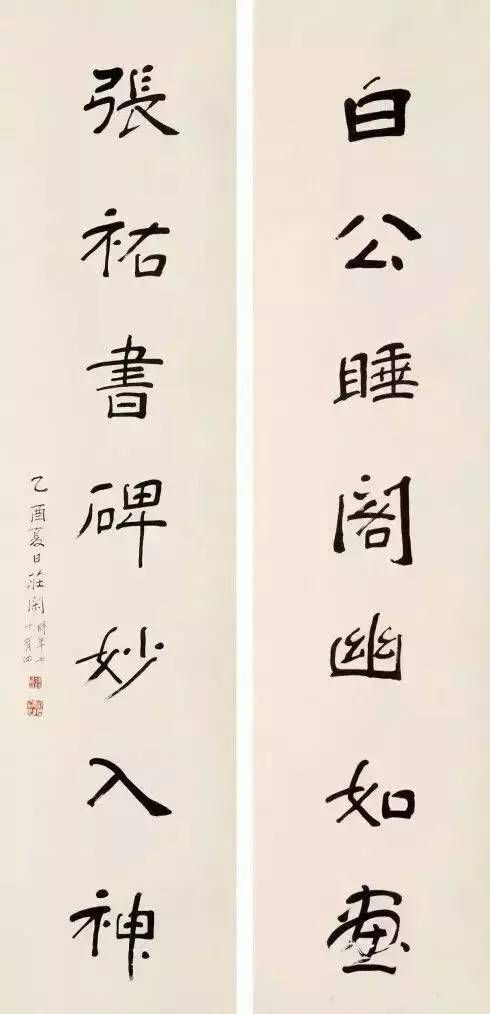 白公睡阁幽如画
張祐書碑妙入神
乙酉夏日莊閑時年七
十有四